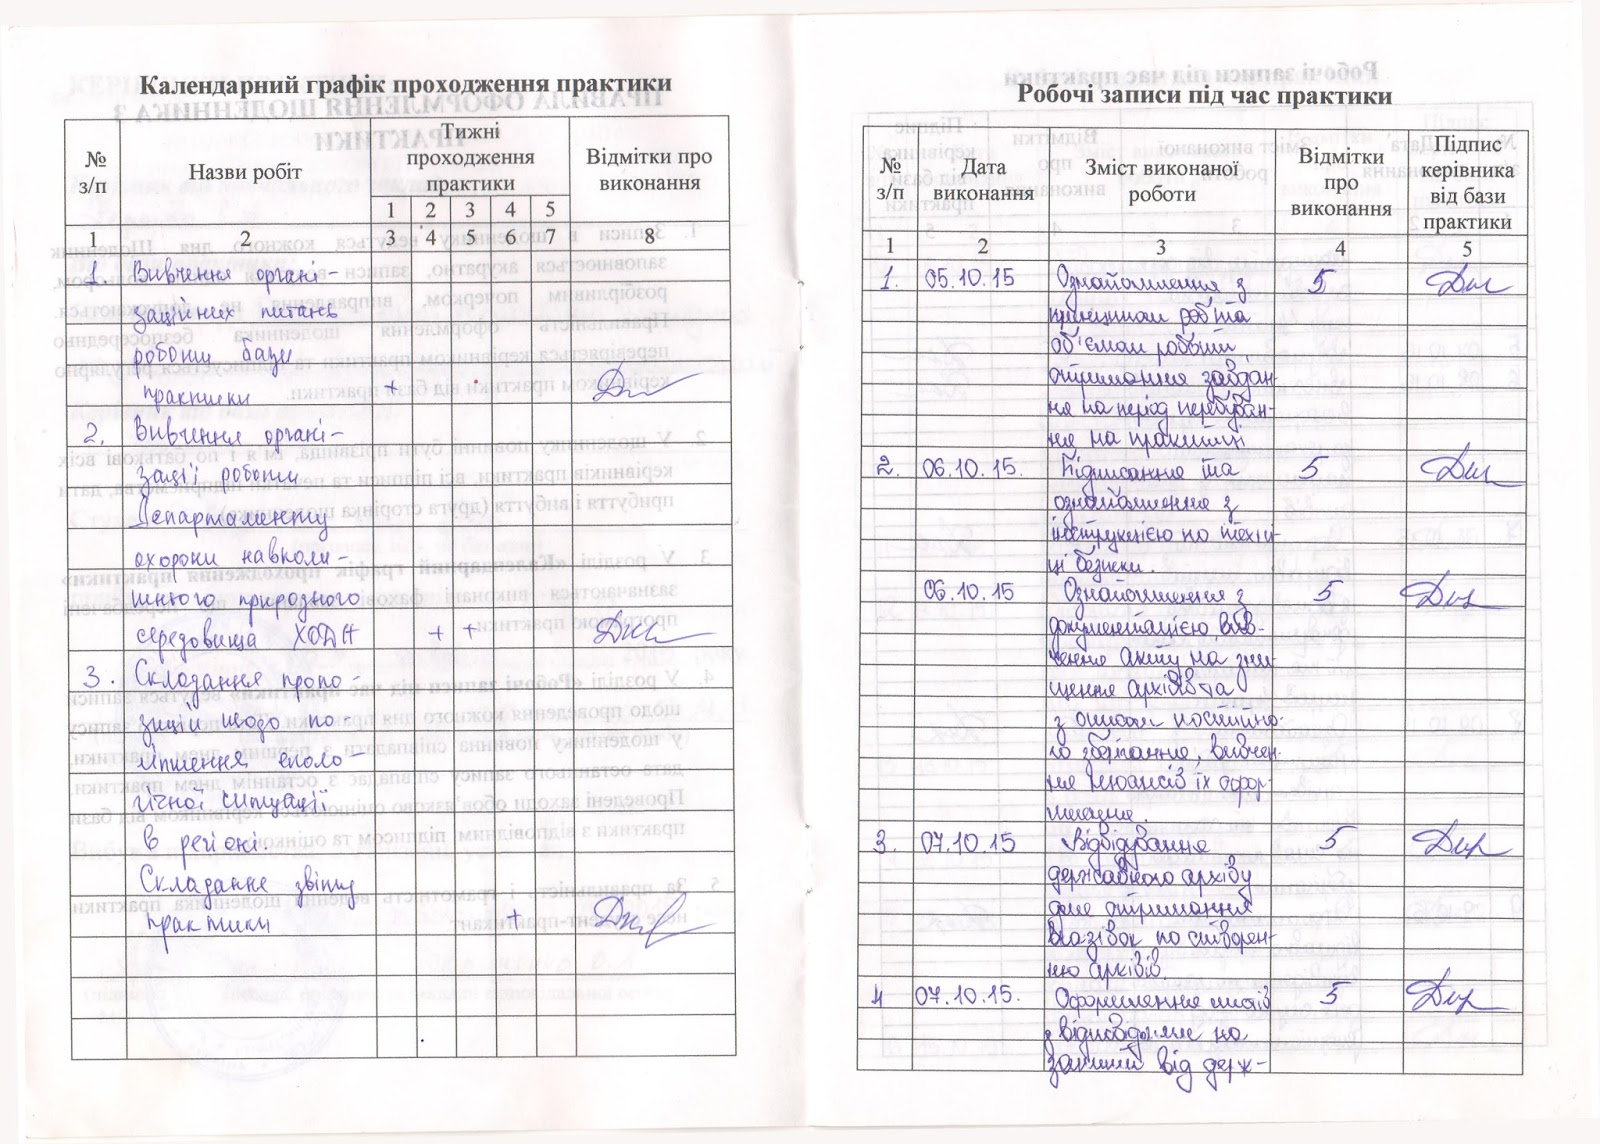 Календарний графік проходження практики
№ з/п
Назви робіт
Тижні проходження практики
Відмітки про виконання
1 2 3 4 5
1 2 3 4 5 6 7 8
1. Вивчення органі-
заційних питань
роботи бази
практики +
2. Вивчення органі-
зації роботи
Департаменту
охорони навколи-
шнього природного
середовища ХОДА + +
3. Складання пропо-
зицій щодо по-
ліпшення еколо-
гічної ситуації
в регіоні.
Складання звіту
практики +
Робочі записи під час практики
№ з/п
Дата виконання
Зміст виконаної роботи
Відмітки про виконання
Підпис керівника від бази практики
1 2 3 4 5
1. 05.10.15 Ознайомлення з 5
принципом роботи та
об'ємом роботи,
отримання завдан-
ня на період перебуван-
ня на практиці
2. 06.10.15. Підписання та 5
ознайомлення з
інструкцією по техні-
ці безпеки.
06.10.15 Ознайомлення з 5
документацією вив-
чення акту на зни-
щення архівів та
з описом постійно-
го зберігання, вивчен-
ня нюансів їх офор-
млення.
3. 07.10.15 Відвідування 5
державного архіву
для отримання
вказівок по створен-
ню архівів.
4 07.10.15. Оформлення листів 5
з відповідями на
запити від держ-